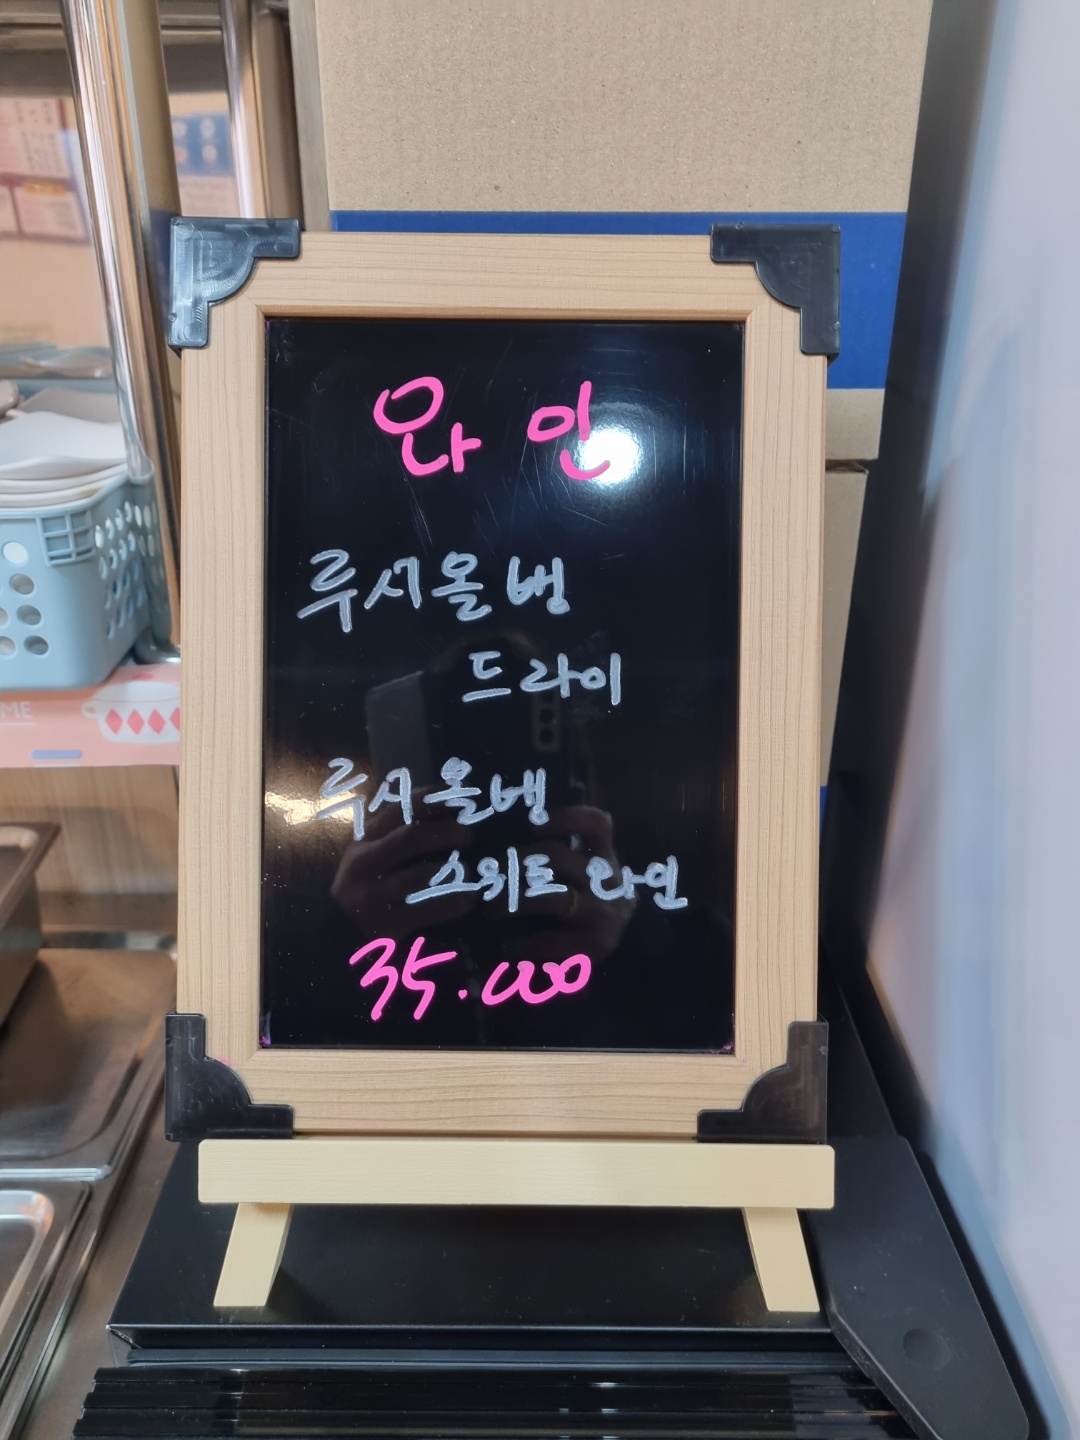 와인
루시올뱅
드라이
루시올벵
스위트 와인
35.000
ME